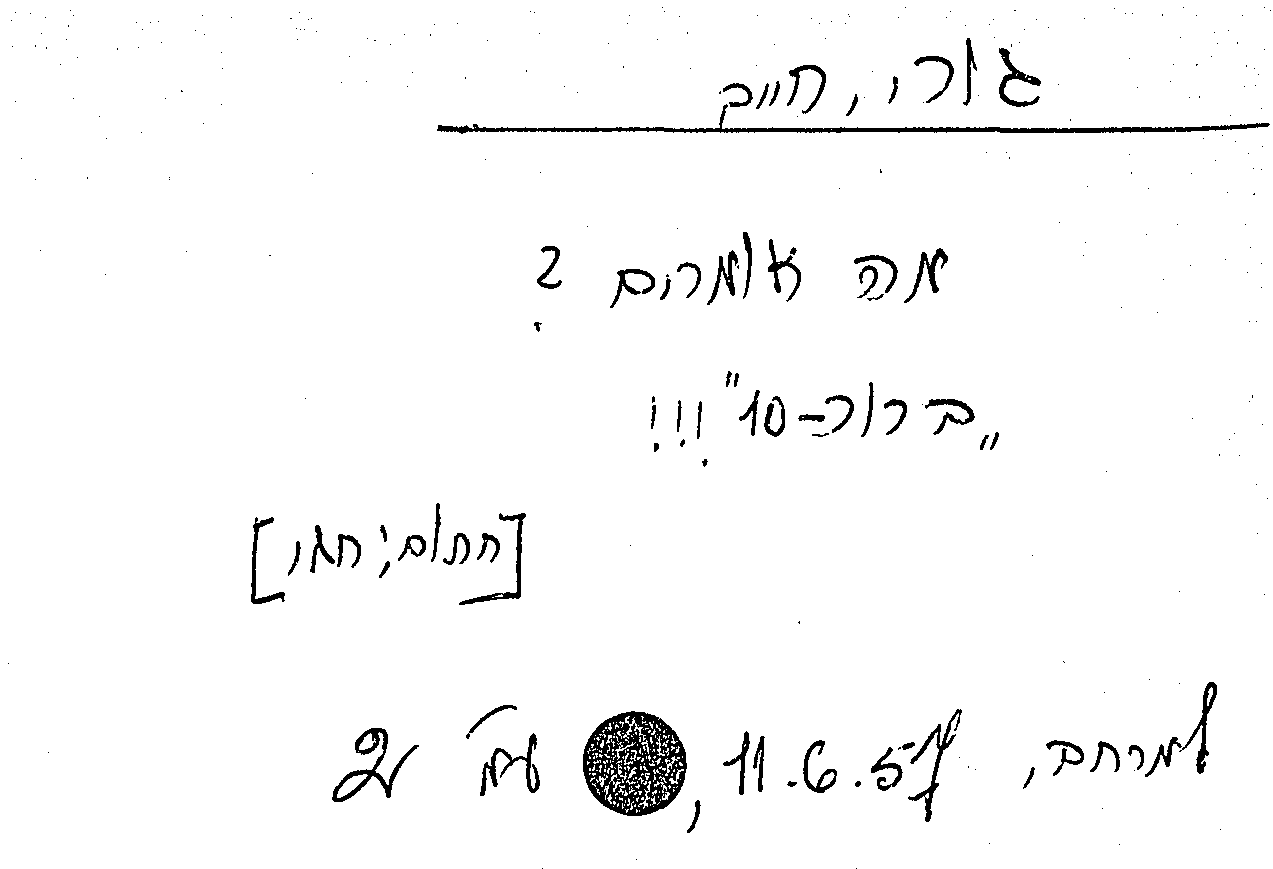 גורי, חיים
מה אומרים ?
„ברוכ-10" !!!
[חתום; חגי]
למרחב, 11.6.57, עמ' 2